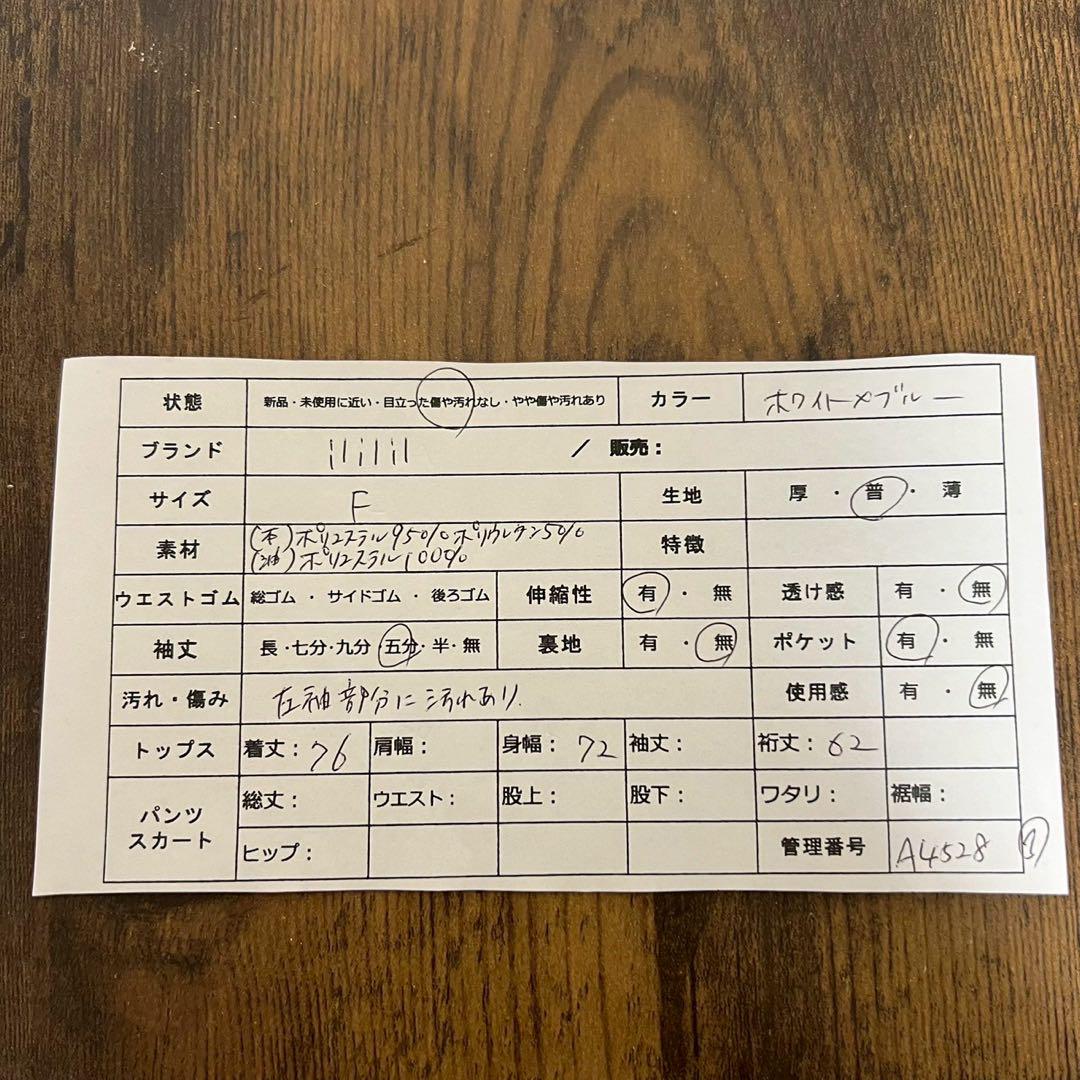 状態 新品・未使用に近い・目立った傷や汚れなし・やや傷や汚れあり カラー ホワイト×ブルー
ブランド ililil / 販売：
サイズ F 生地 厚・普・薄
素材 (本)ポリエステル95% ポリウレタン5% 特徴
(袖)ポリエステル100%
ウエストゴム 総ゴム・サイドゴム・後ろゴム 伸縮性 有・無 透け感 有・無
袖丈 長・七分・九分・五分・半・無 裏地 有・無 ポケット 有・無
汚れ・傷み 左袖部分に汚れあり. 使用感 有・無
トップス 着丈：76 肩幅： 身幅：72 袖丈： 裄丈：62
パンツ スカート 総丈： ウエスト： 股上： 股下： ワタリ： 裾幅：
ヒップ： 管理番号 A4528